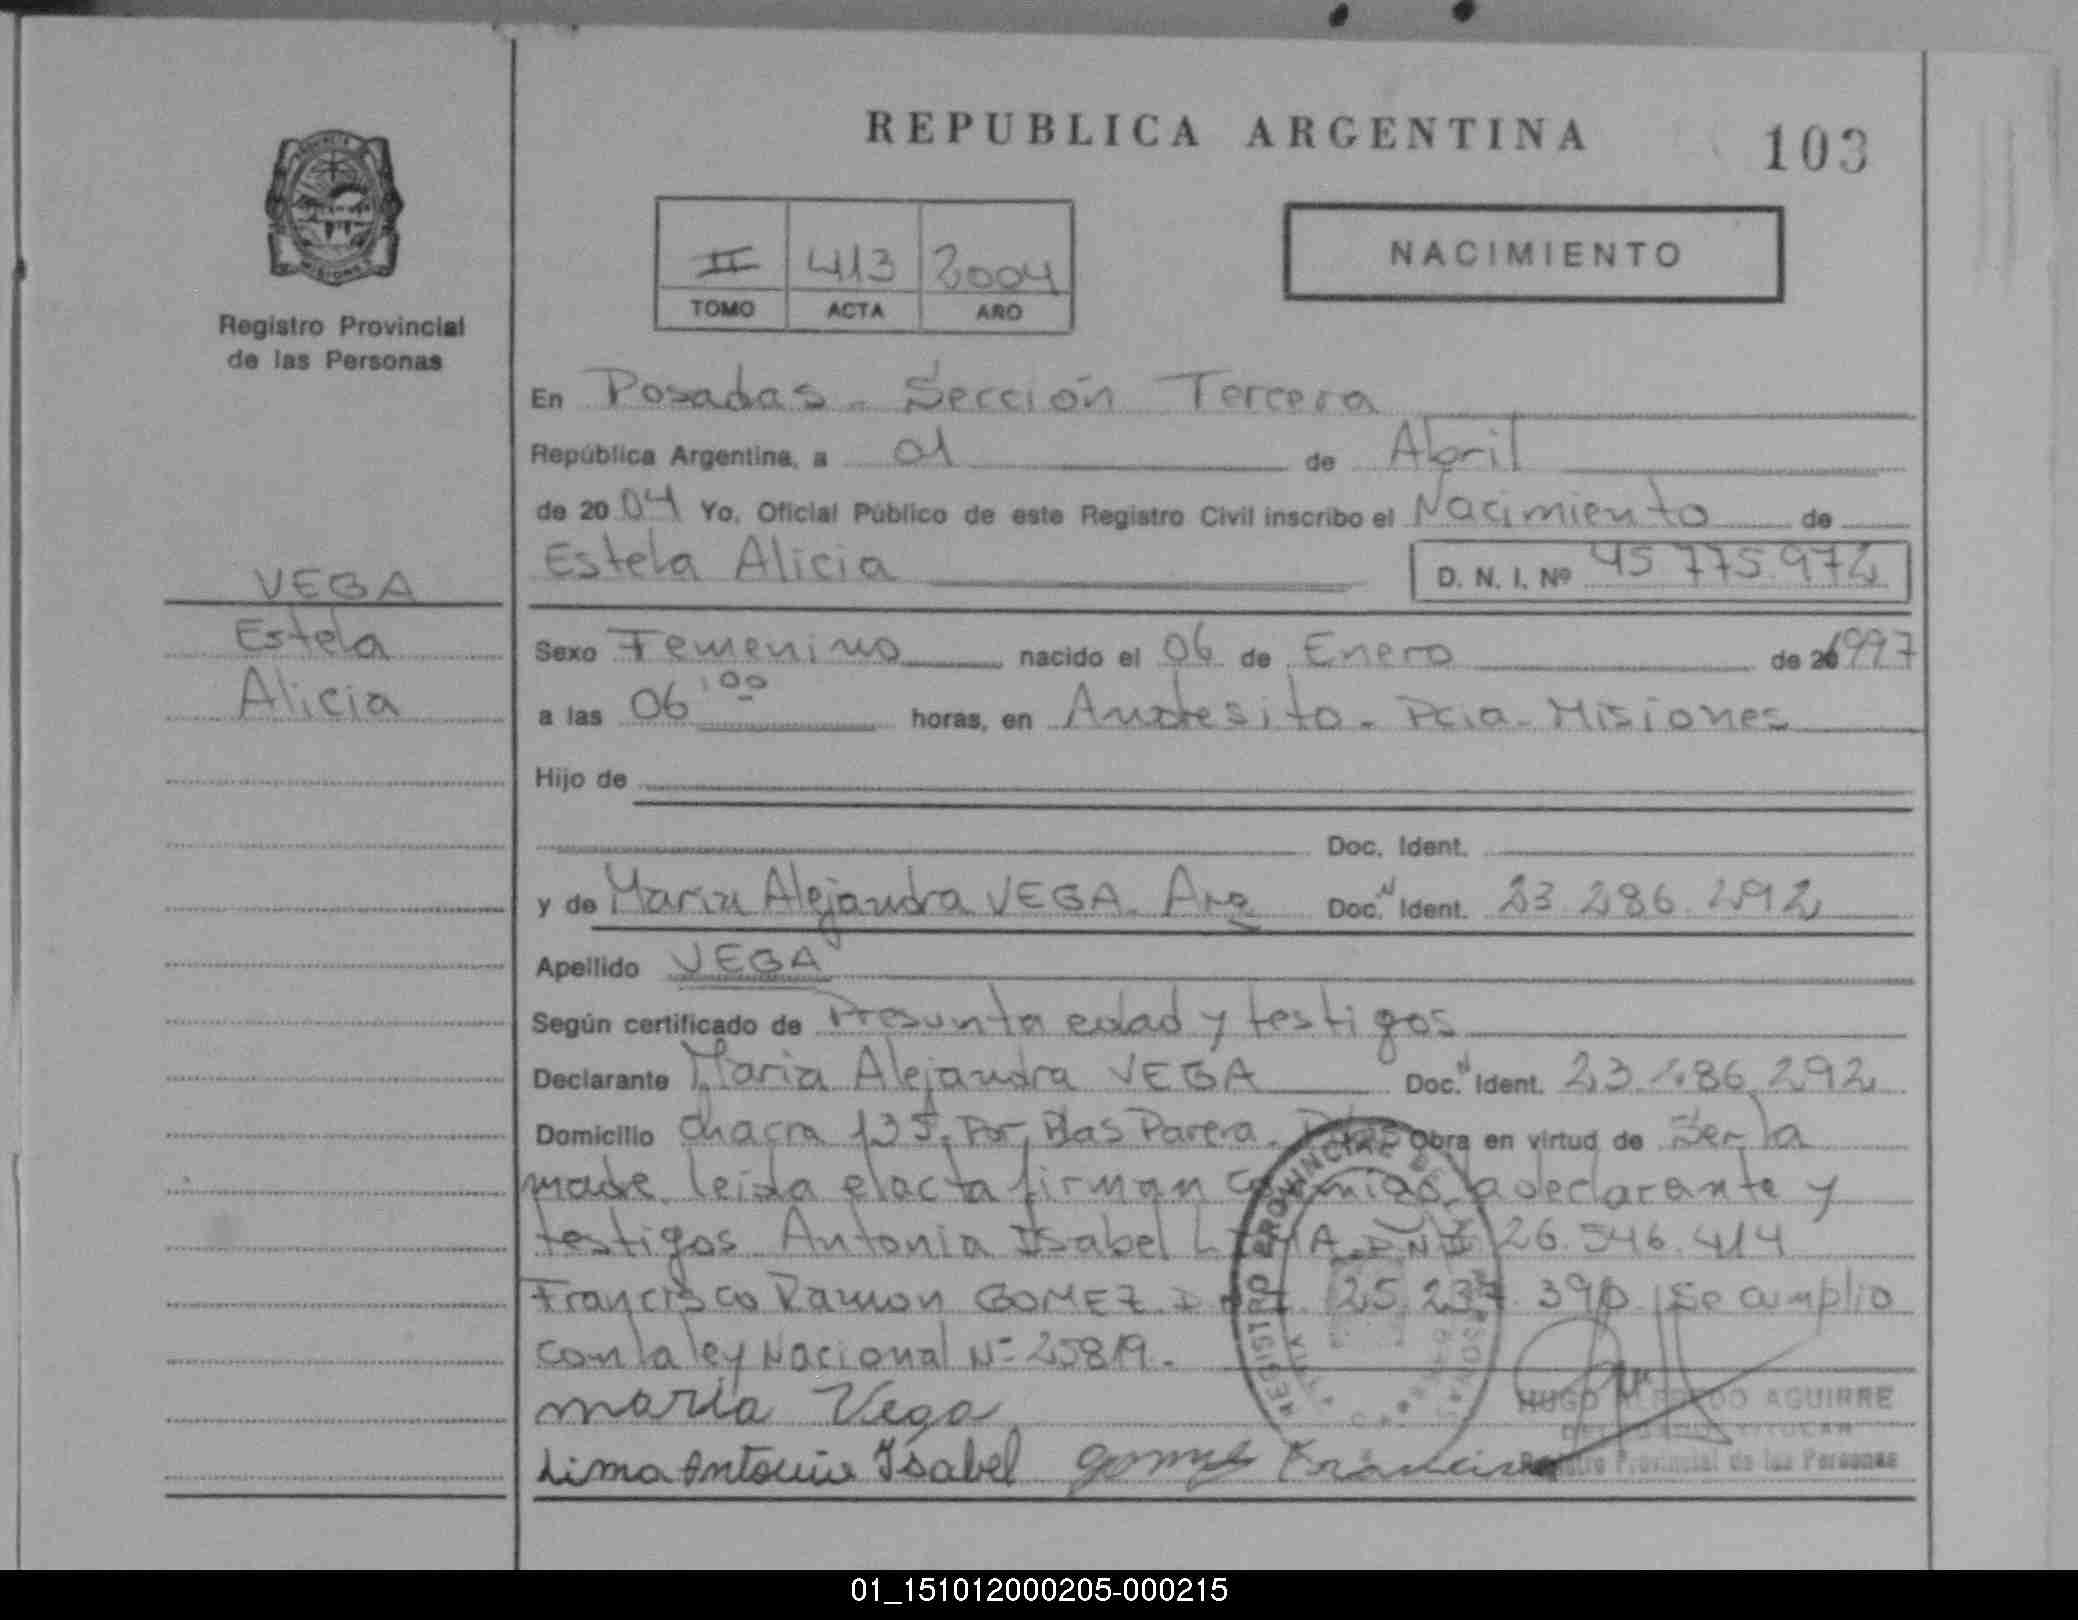 REPUBLICA ARGENTINA
103
II 413 2004
TOMO ACTA AÑO
NACIMIENTO
Registro Provincial
de las Personas
VEGA
Estela
Alicia
En Posadas - Sección Tercera
República Argentina, a 01 de Abril
de 2004 Yo, Oficial Público de este Registro Civil inscribo el Nacimiento de
Estela Alicia D. N. I. Nº 45 775 972
Sexo Femenino nacido el 06 de Enero de 1997
a las 06:00 horas, en Andresito - Pcia - Misiones
Hijo de
Doc. Ident.
y de Maria Alejandra VEGA. Arg Doc. N Ident. 23.286.292
Apellido VEGA
Según certificado de Presunta edad y testigos
Declarante Maria Alejandra VEGA Doc. N Ident. 23.286.292
Domicilio Chacra 135, Por, Blas Parera. Obra en virtud de Ser la
madre leida el acta firman conmigo la declarante y
testigos Antonia Isabel LIMA DNI 26.546.414
Francisco Ramon GOMEZ 25.237.390 Se cumplio
con la ley Nacional Nº 25819.
maria Vega
Lima Antonia Isabel gomez Francisco
REGISTRO PROVINCIAL DE LAS PERSONAS
HUGO ALFREDO AGUIRRE
DELEGADO TITULAR
Registro Provincial de las Personas
01_151012000205-000215